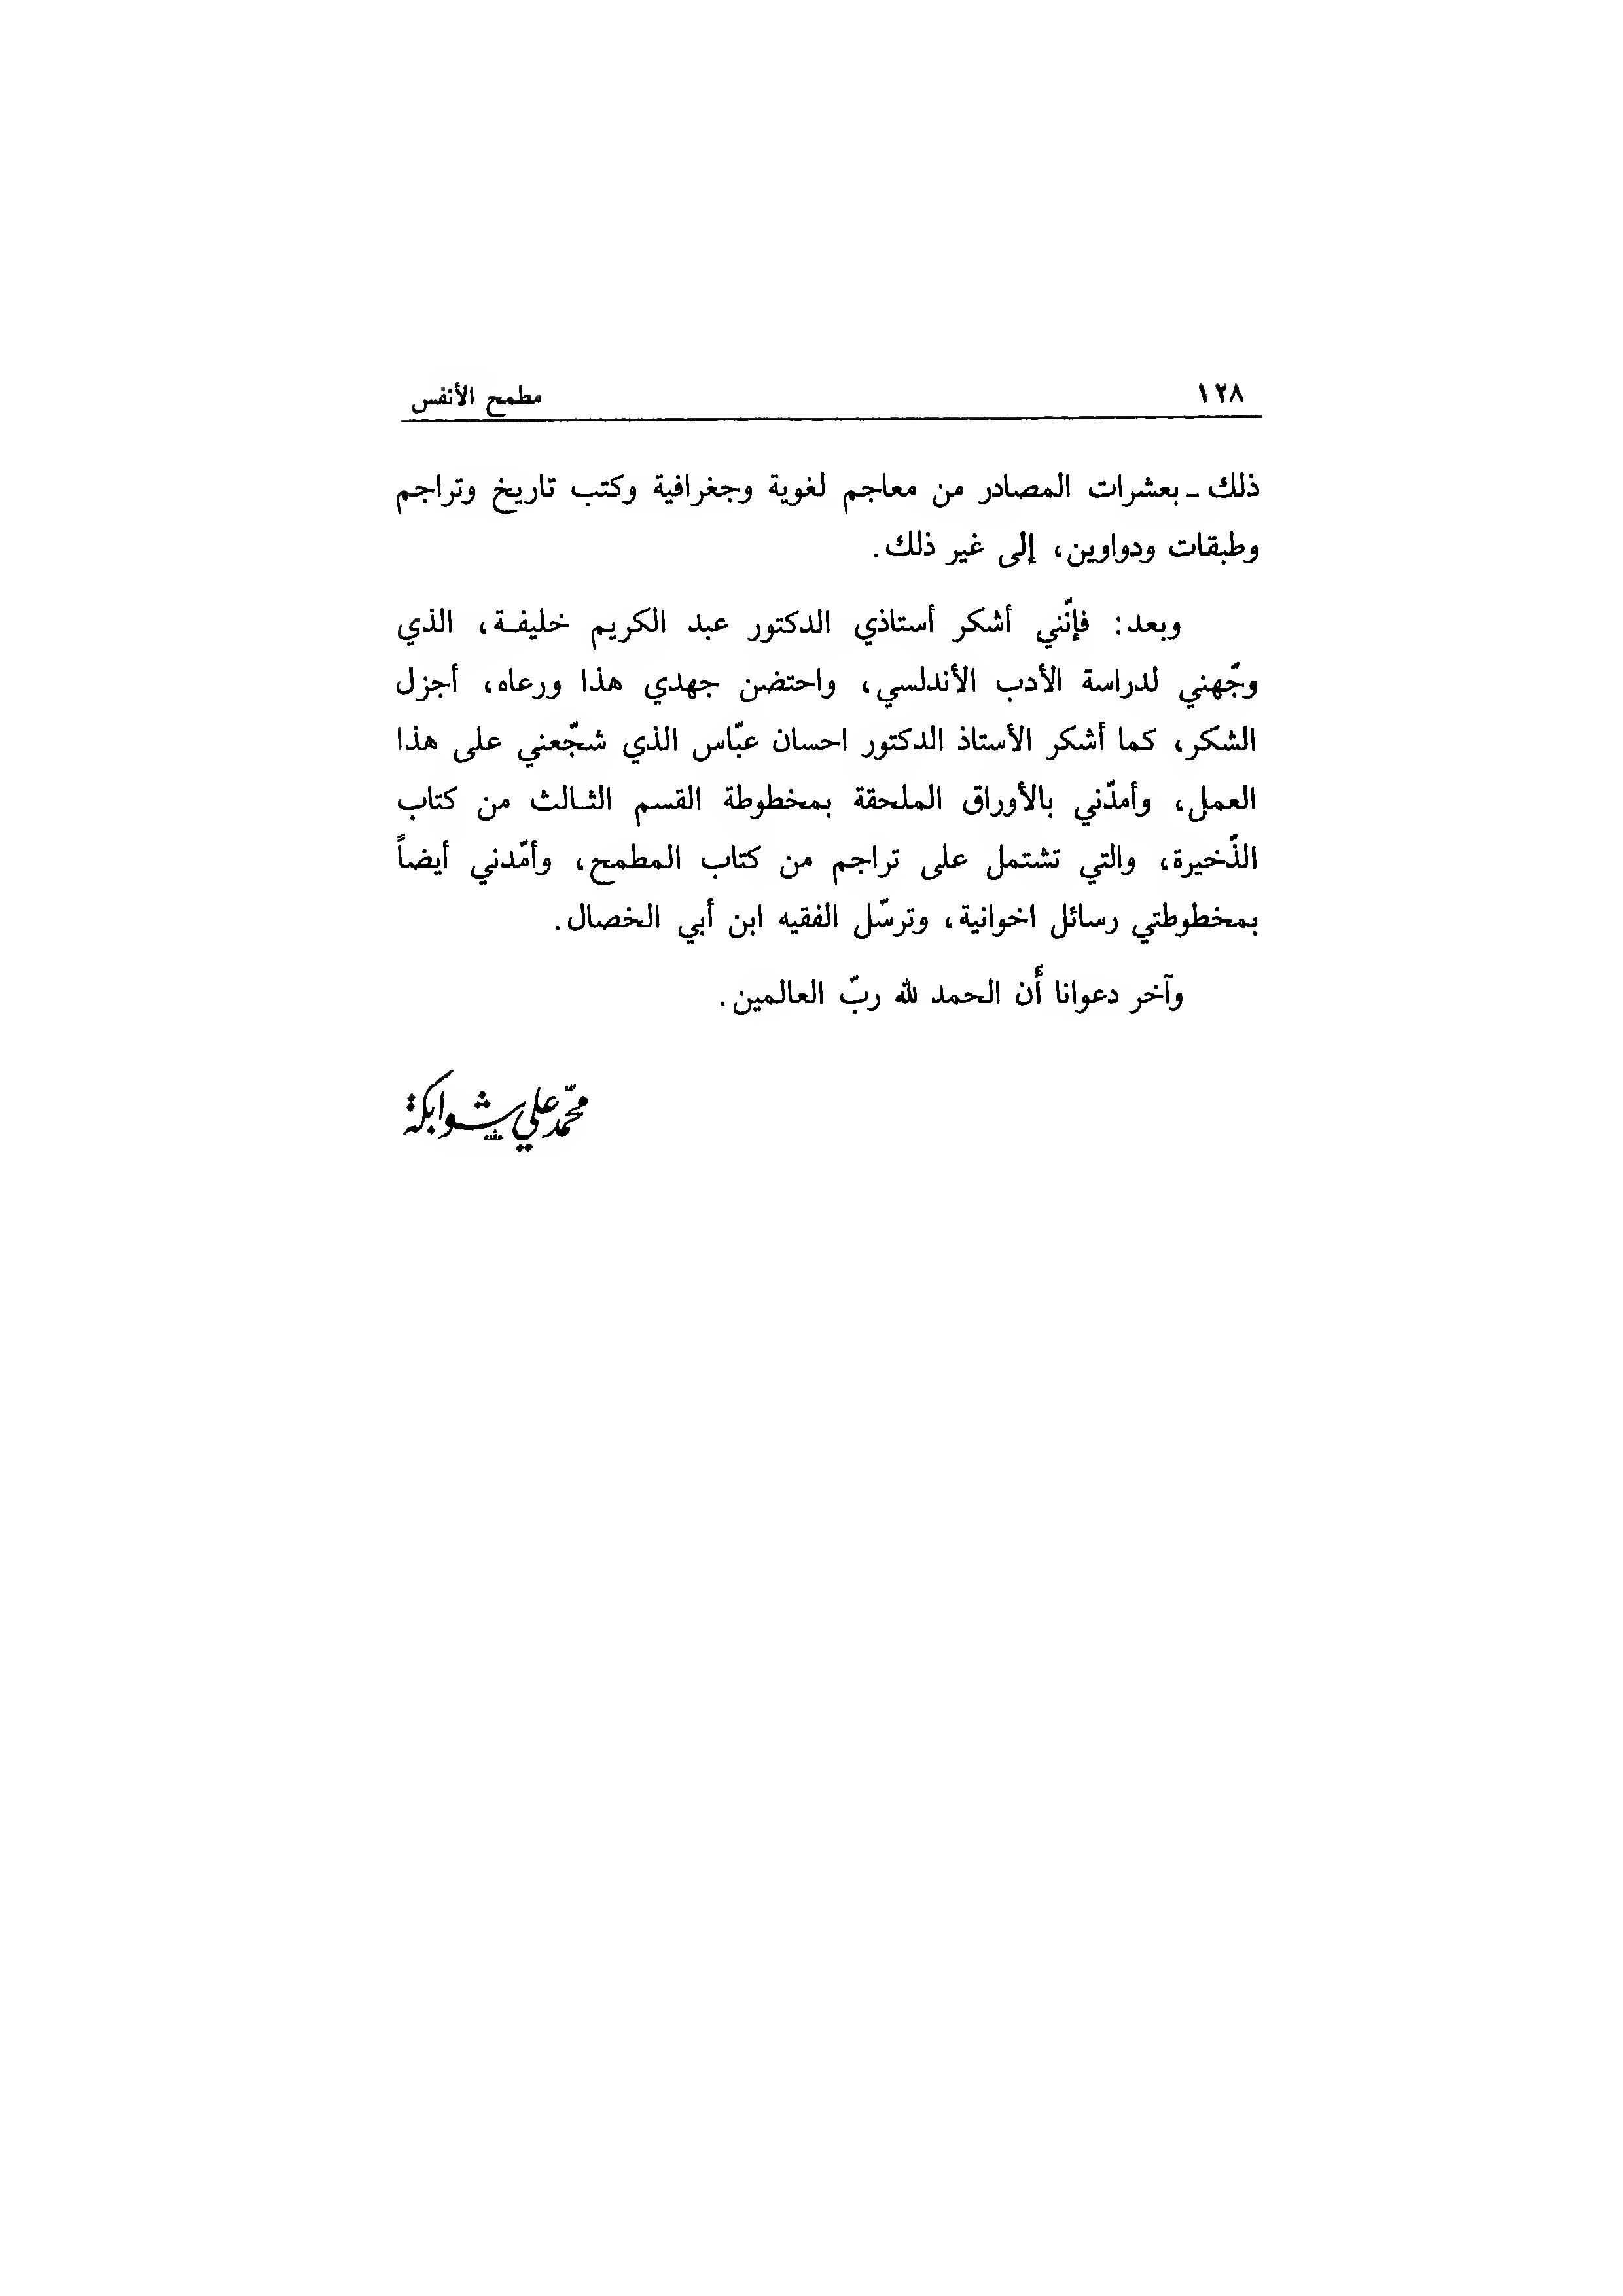 ١٢٨
مطمح الأنفس
ذلك ـ بعشرات المصادر من معاجم لغوية وجغرافية وكتب تاريخ وتراجم
وطبقات ودواوين، إلى غير ذلك.
وبعد: فإنّني أشكر أستاذي الدكتور عبد الكريم خليفـة، الذي
وجّهني لدراسة الأدب الأندلسي، واحتضن جهدي هذا ورعاه، أجزل
الشكر، كما أشكر الأستاذ الدكتور احسان عبّاس الذي شجّعني على هذا
العمل، وأمدّني بالأوراق الملحقة بمخطوطة القسم الثـالث من كتاب
الذّخيرة، والتي تشتمل على تراجم من كتاب المطمح، وأمّدني أيضاً
بمخطوطتي رسائل اخوانية، وترسّل الفقيه ابن أبي الخصال.
وآخر دعوانا أَن الحمد لله ربّ العالمين.
محمّد علي شوابكة